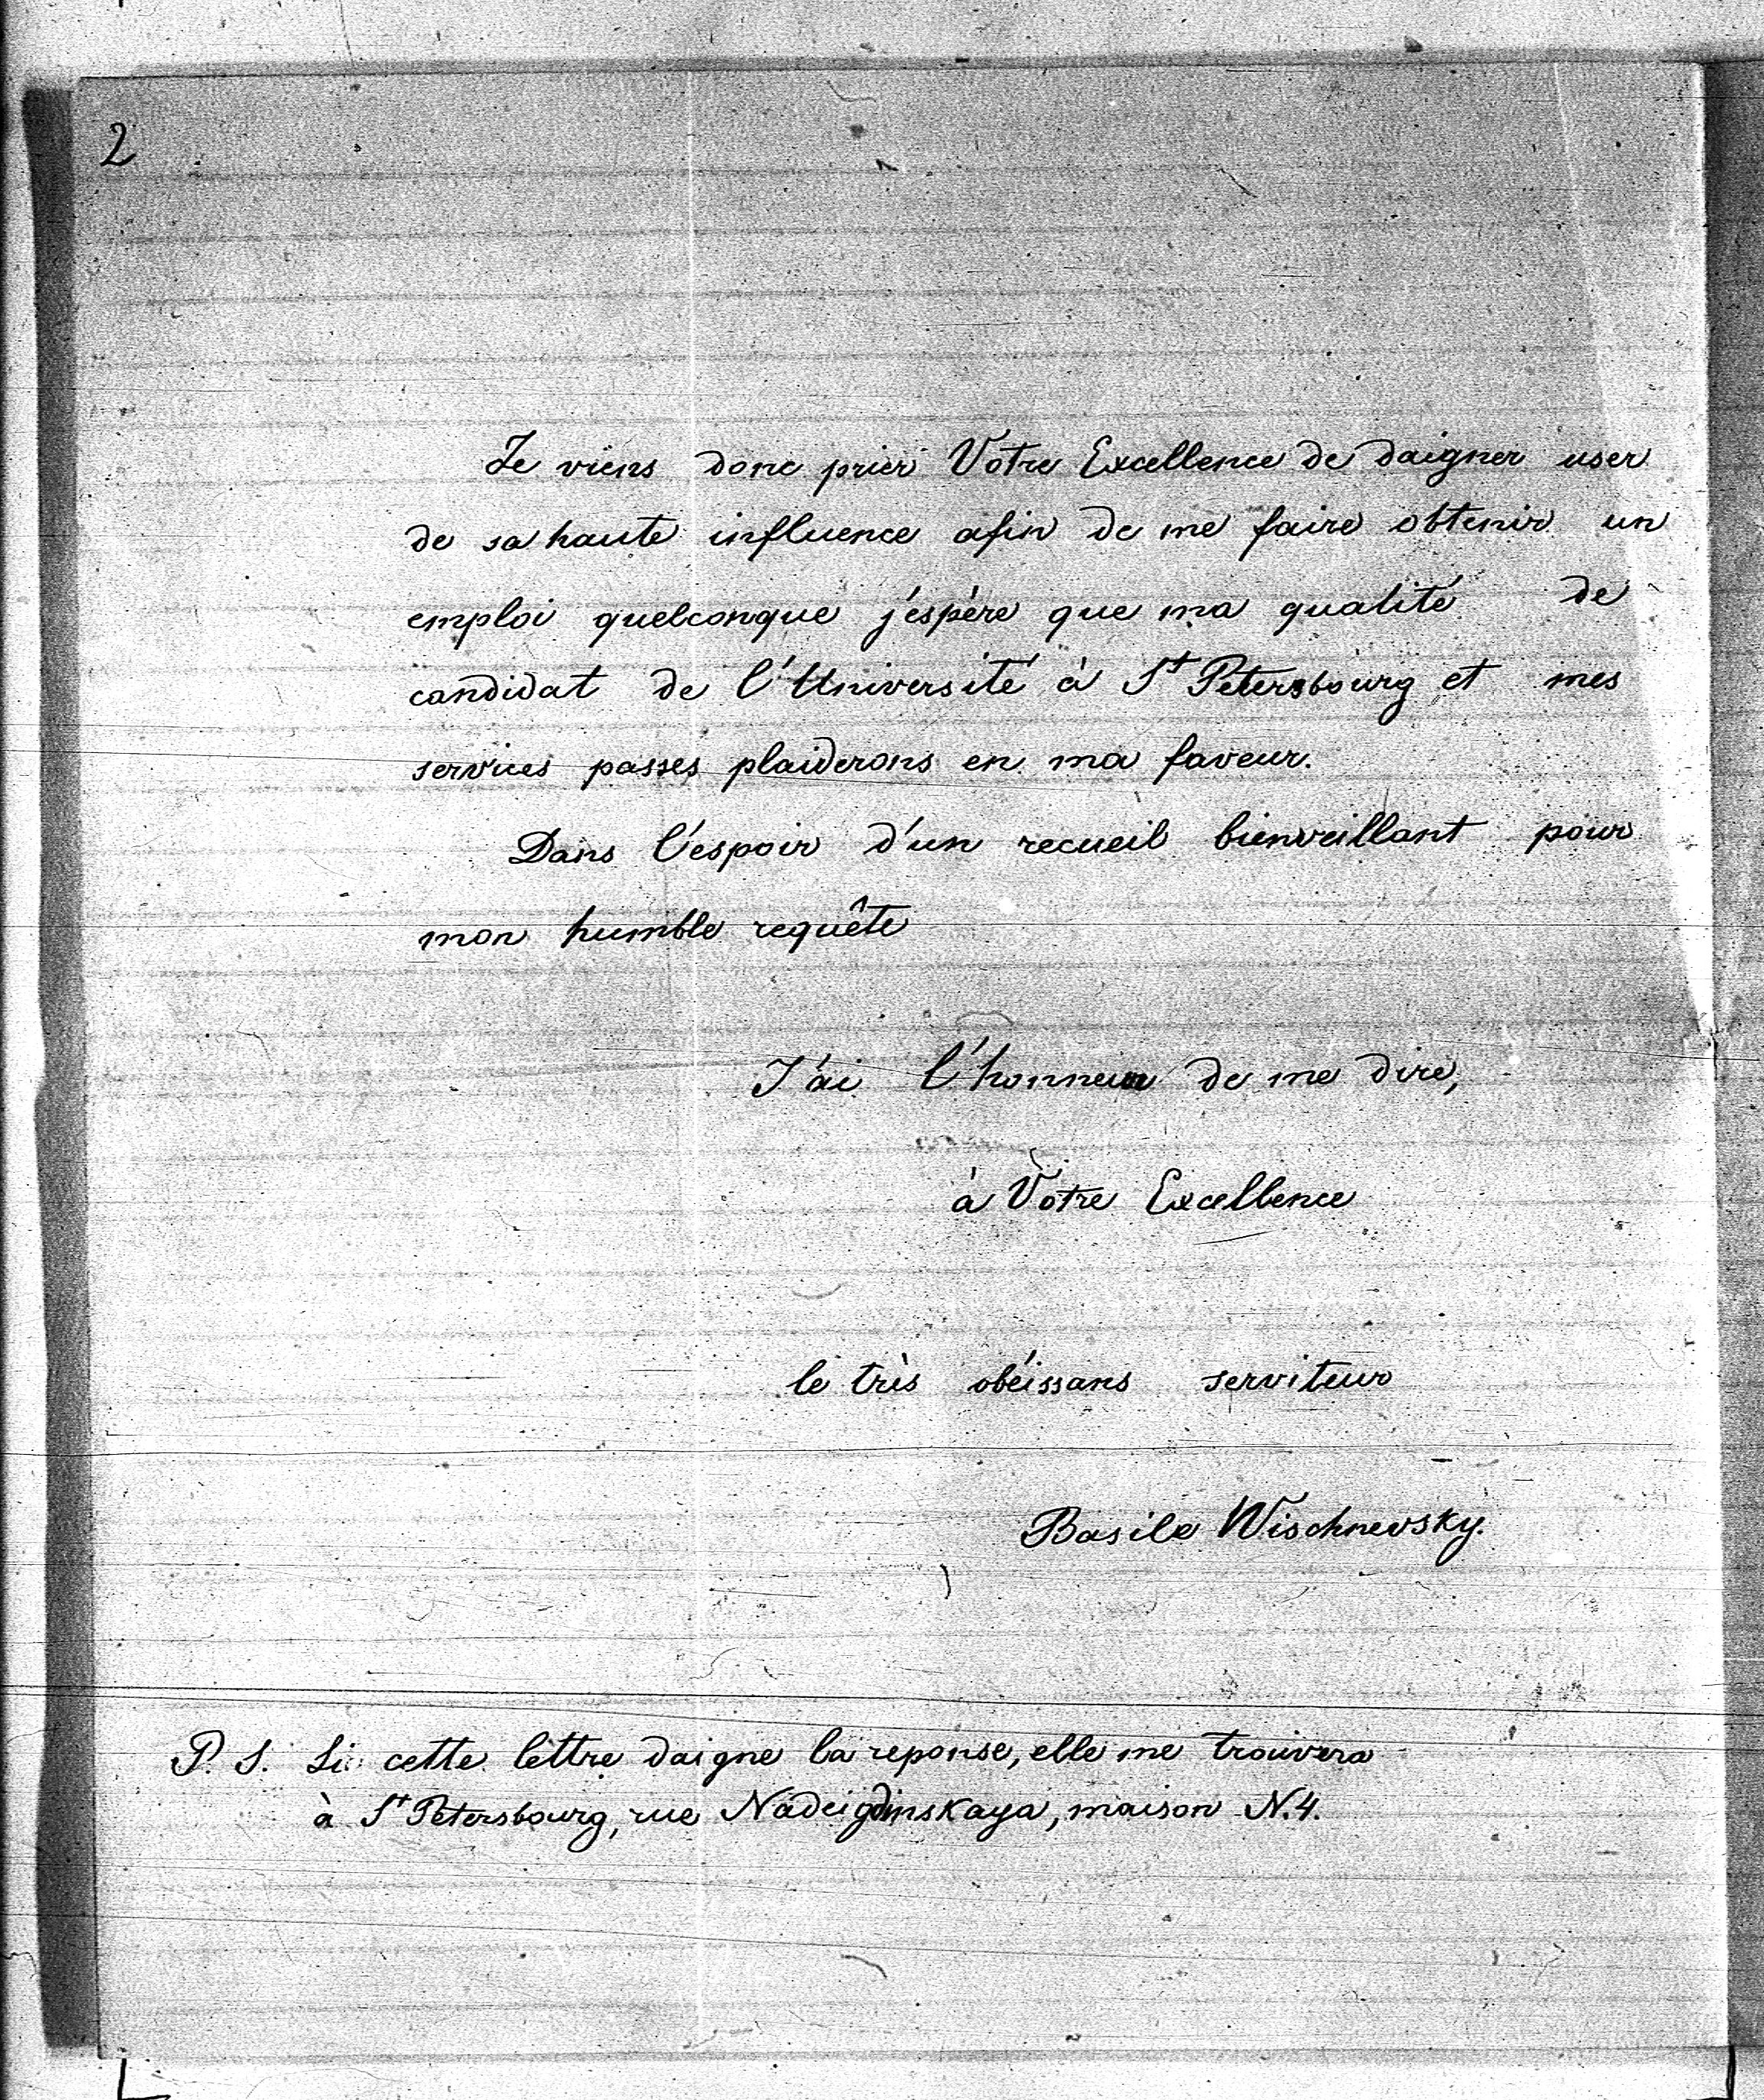 2
Je viens donc prier Votre Excellence de daigner user
de sa haute influence afin de me faire obtenir un
emploi quelconque j'éspère que ma qualité de
candidat de l'Université à St Petersbourg et mes
services passés plaiderons en ma faveur.
Dans l'espoir d'un recueil bienveillant pour
mon humble requête
J'ai l'honneur de me dire,
à Votre Excellence
le très obéissans serviteur
Basile Wischnevsky.
P. S. Si cette lettre daigne la reponse, elle me trouvera
à St Petersbourg, rue Nadeigdinskaya, maison N. 4.